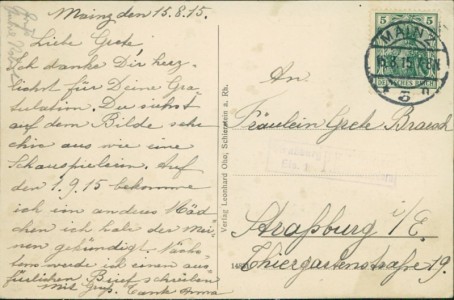 Mainz den 15.8.15.
Liebe Grete!
Ich danke Dir herz-
lichst für Deine Gra-
tulation. Du siehst
auf dem Bilde
aus wie eine
Schauspielerin. Auf
den 1.9.15 bekomme
ich ein anderes Mäd-
chen ich habe der mei-
nen gekündigt. Nächs-
tens werde ich einen aus-
führlichen Brief schreiben
Mit Gruß. Tante Anna
Verlag Leonhard Ohe, Schierstein a. Rh.
5 5
DEUTSCHES REICH
MAINZ
16.8.15. 7-8N
An
Fräulein Grete Brasch
Straßburg i/E.
Thiergartenstraße 19.